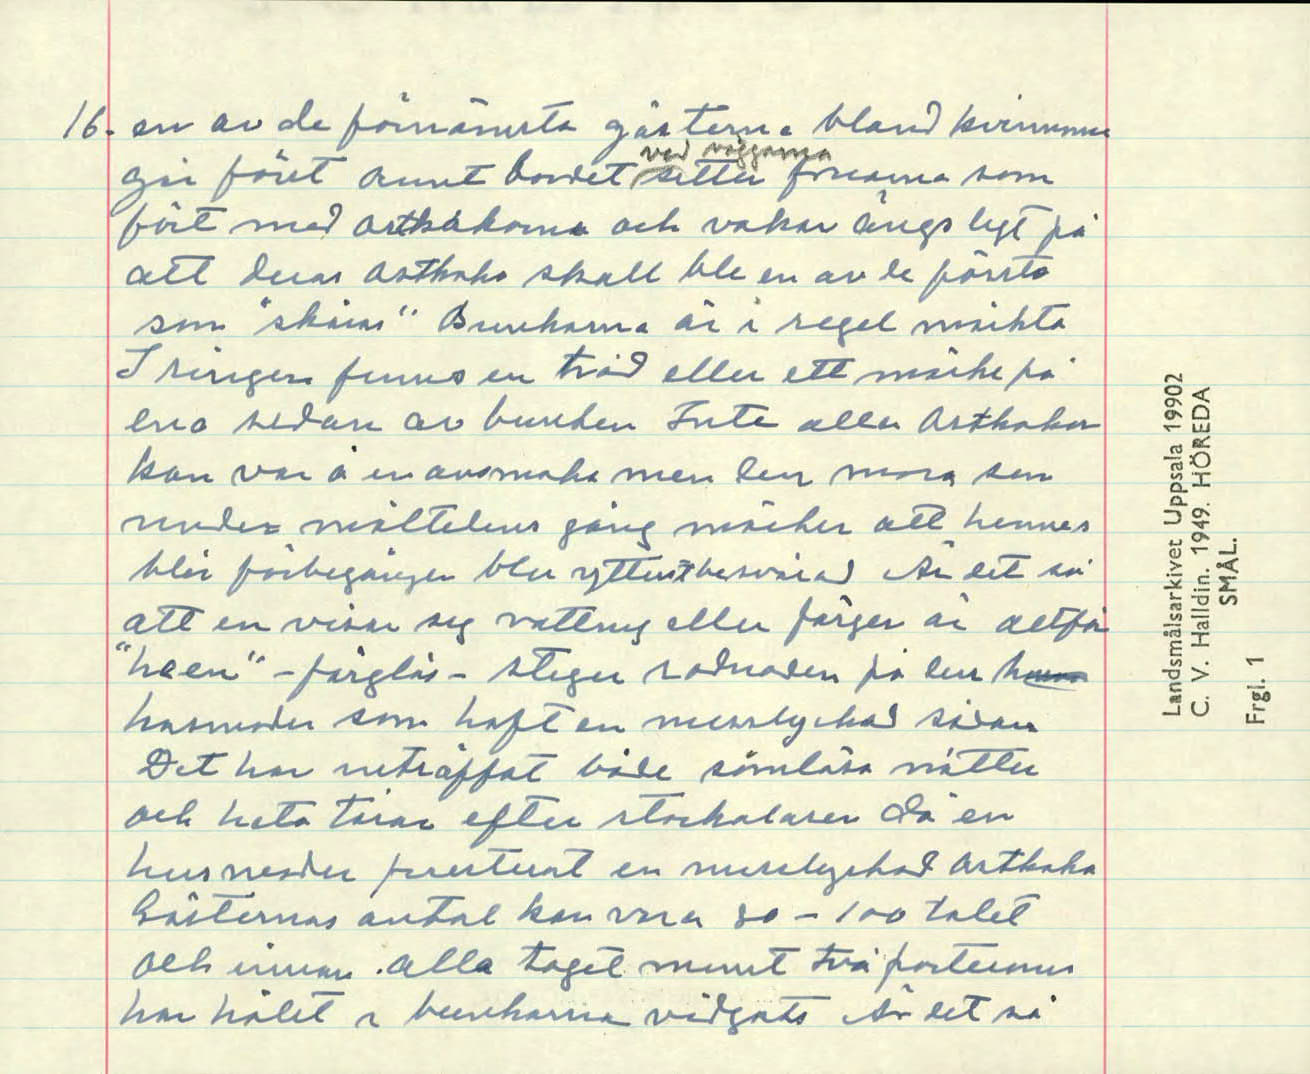 16. en av de förnämsta gästerna bland kvinnorna
går först runt bordet ved väggarna sitter fruarna som
fört med ostkakorna och vakar ängsligt på
att deras ostkaka skall ble en av de första
som "skäras" Bunkarna är i regel märkta
I ringen finns en tråd eller ett märke på
ena sidan av bunken Inte alla Ostkakor
kan var å en avsmaka men den mora som
under måltidens gång märker att hennes
blir förbegången bler ytterst besvärad Är det så
att en visar sig vattnig eller färgen är altför
"haen" - färglös - stiger rodnaden på den
husmoder som haft en misslyckad sådan
Det har inträffat både sömnlösa nätter
och heta tårar efter stockalasen då en
husmoder presterat en misslyckad ostkaka
Gästernas antal kan vara 80 - 100 talet
och innan alla taget minst två portioner
har hålet i bunkarna vidgats Är det så
Landsmålsarkivet Uppsala 19902
C. V. Halldin. 1949. HÖREDA
SMÅL.
Frgl. 1